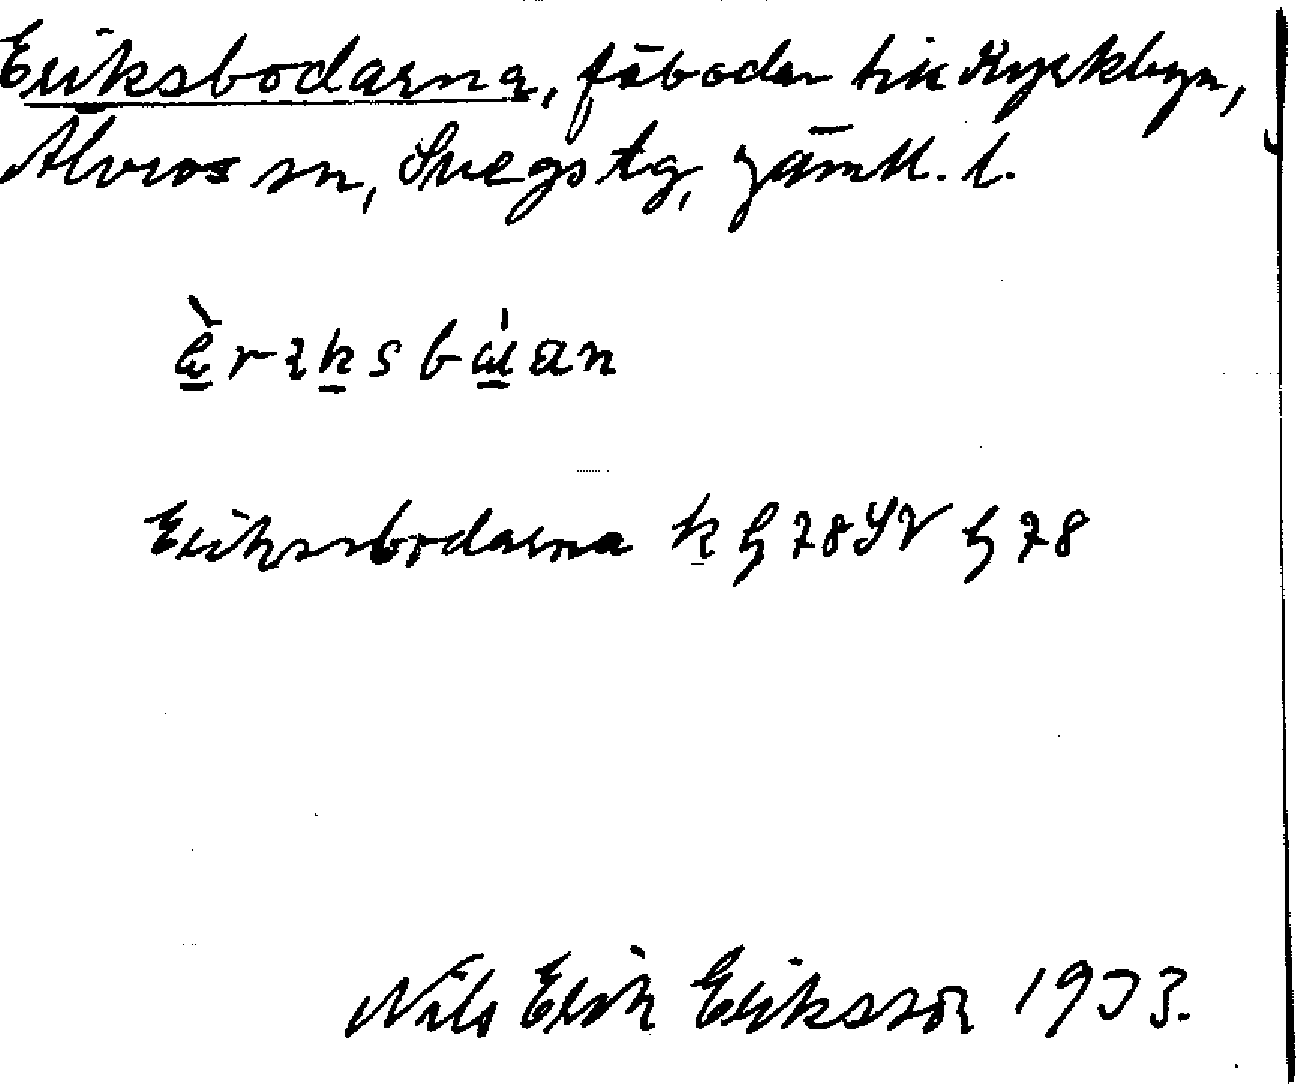 Eriksbodarna, fäbodar till Kyrkbyn,
Älvros sn, Svegs tg, Jämtl. l.
Eriksbodarna k G 78 SV G 78
Nils Erik Eriksson 1933.